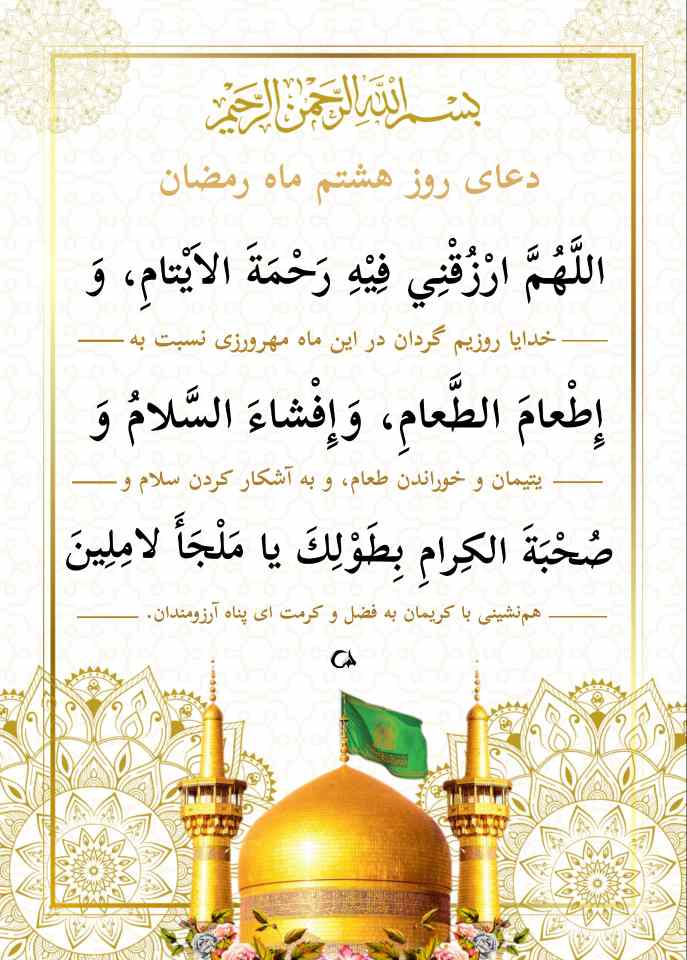 بسم الله الرحمن الرحیم
دعای روز هشتم ماه رمضان
اللَّهُمَّ ارْزُقْنِي فِيْهِ رَحْمَةَ الاَيْتامِ، وَ
خدایا روزیم گردان در این ماه مهرورزی نسبت به
إِطْعامَ الطَّعامِ، وَإِفْشاءَ السَّلامُ وَ
یتیمان و خوراندن طعام، و به آشکار کردن سلام و
صُحْبَةَ الكِرامِ بِطَوْلِكَ يا مَلْجَأَ لامِلِينَ
هم‌نشینی با کریمان به فضل و کرمت ای پناه آرزومندان.